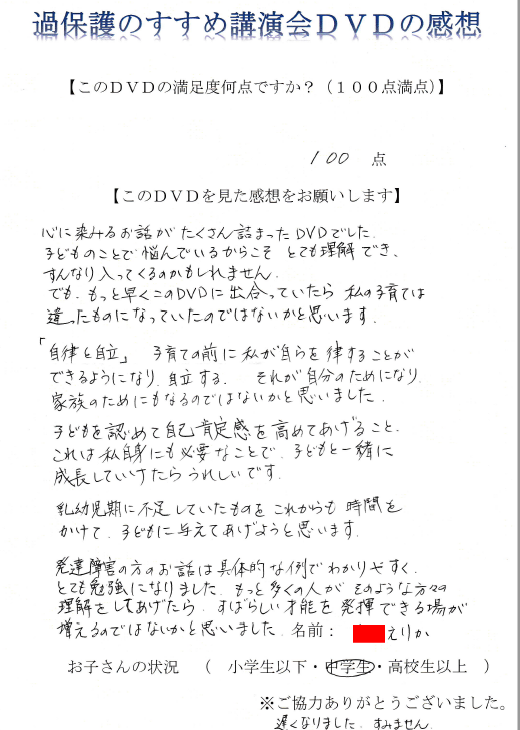 過保護のすすめ講演会ＤＶＤの感想
【このＤＶＤの満足度何点ですか？（１００点満点）】
１００ 点
【このＤＶＤを見た感想をお願いします】
心に染みるお話がたくさん詰まったDVDでした.
子どものことで悩んでいるからこそ とても理解でき、
すんなり入ってくるのかもしれません.
でも、もっと早くこのDVDに出合っていたら 私の子育ては
違ったものになっていたのではないかと思います.
「自律と自立」 子育ての前に私が自らを律することが
できるようになり、自立する. それが自分のためになり、
家族のためにもなるのではないかと思いました.
子どもを認めて自己肯定感を高めてあげること、
これは私自身にも必要なことで、子どもと一緒に
成長していけたらうれしいです.
乳幼児期に不足していたものを これからも 時間を
かけて、子どもに与えてあげようと思います.
発達障害の方のお話は具体的な例でわかりやすく、
とても勉強になりました. もっと多くの人が そのような方々の
理解をしてあげたら、すばらしい才能を発揮できる場が
増えるのではないかと思いました. 名前： えりか
お子さんの状況 （ 小学生以下・中学生・高校生以上 ）
※ご協力ありがとうございました。
遅くなりました. すみません.